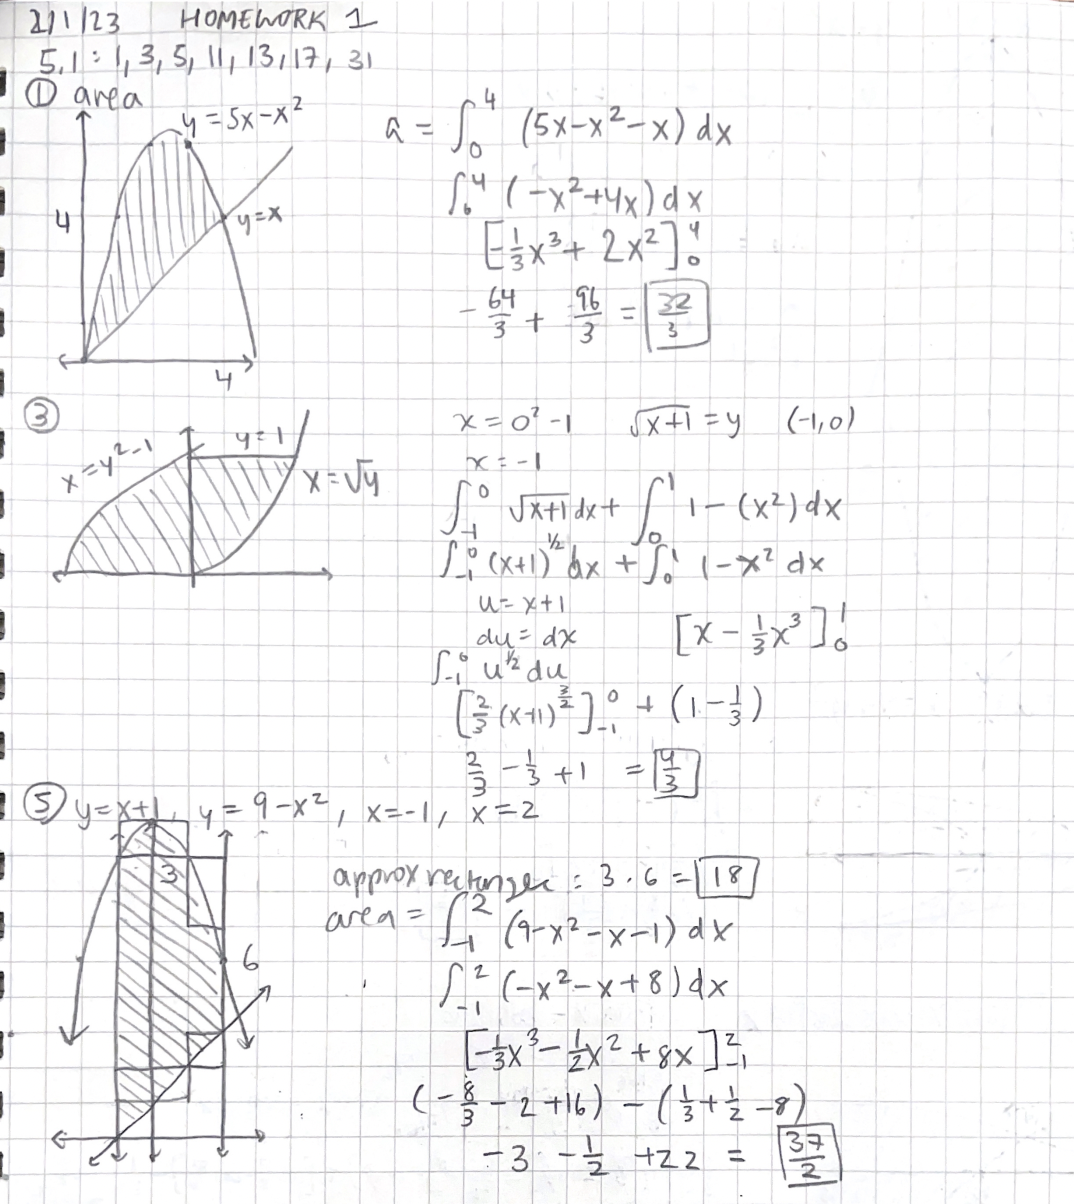 2/1/23 HOMEWORK 1
5.1 : 1, 3, 5, 11, 13, 17, 31
① area
y = 5x-x²
4
y=x
4
a = ∫₀⁴ (5x-x²-x) dx
∫₀⁴ (-x²+4x) dx
[-1/3x³ + 2x²]₀⁴
-64/3 + 96/3 = 32/3
③
x=y²-1
y=1
x=√y
x = 0² -1 √x+1 = y (-1,0)
x = -1
∫₋₁⁰ √x+1 dx + ∫₀¹ 1-(x²) dx
∫₋₁⁰ (x+1)^1/2 dx + ∫₀¹ 1-x² dx
u = x+1
du = dx [x - 1/3x³]₀¹
∫₋₁⁰ u^1/2 du
[2/3 (x+1)^3/2]₋₁⁰ + (1-1/3)
2/3 - 1/3 + 1 = 4/3
⑤ y=x+1, y = 9-x², x=-1, x=2
3
6
approx rectangle : 3 · 6 = 18
area = ∫₋₁² (9-x²-x-1) dx
∫₋₁² (-x²-x+8) dx
[-1/3x³ - 1/2x² + 8x]₋₁²
(-8/3 - 2 +16) - (1/3 + 1/2 -8)
-3 -1/2 +22 = 37/2